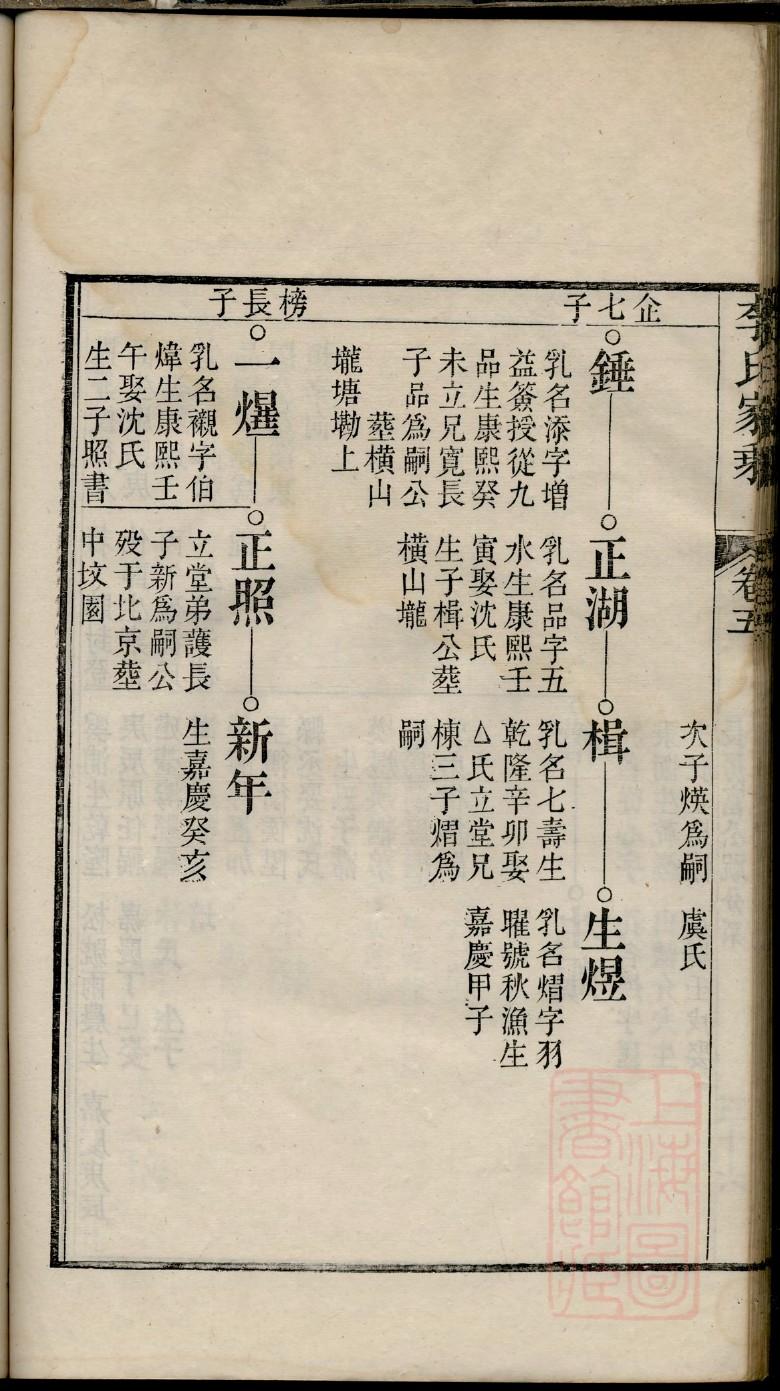 李氏家乘
卷五
次子煐為嗣
虞氏
企七子
錘
乳名添字增
益簽授從九
品生康熙癸
未立兄寬長
子品為嗣公
塟橫山
壠塘墈上
正湖
乳名品字五
水生康熙壬
寅娶沈氏
生子楫公塟
橫山壠
楫
乳名七壽生
乾隆辛卯娶
△氏立堂兄
棟三子熠為
嗣
生煜
乳名熠字羽
曜號秋漁生
嘉慶甲子
榜長子
一爗
乳名襯字伯
煒生康熙壬
午娶沈氏
生二子照書
正照
立堂弟護長
子新為嗣公
歿于北京塟
中坟園
新年
生嘉慶癸亥
上海圖
書館藏